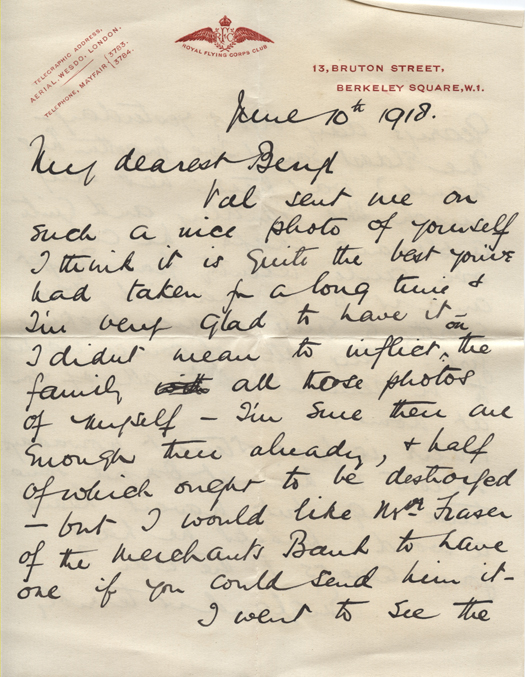 TELEGRAPHIC ADDRESS,
AERIAL. WESDO. LONDON.
TELEPHONE, MAYFAIR {5783. 5784.
RFC
ROYAL FLYING CORPS CLUB
13, BRUTON STREET,
BERKELEY SQUARE, W.1.
June 10th 1918.
My dearest
Val sent me on
such a nice photo of yourself
I think it is quite the best you've
had taken for a long time &
I'm very glad to have it –
I didnt mean to inflict on the
family with all those photos
of myself – I'm sure there are
enough there already, & half
of which ought to be destroyed
– but I would like Mr Fraser
of the Merchants Bank to have
one if you could send him it –
I went to see the